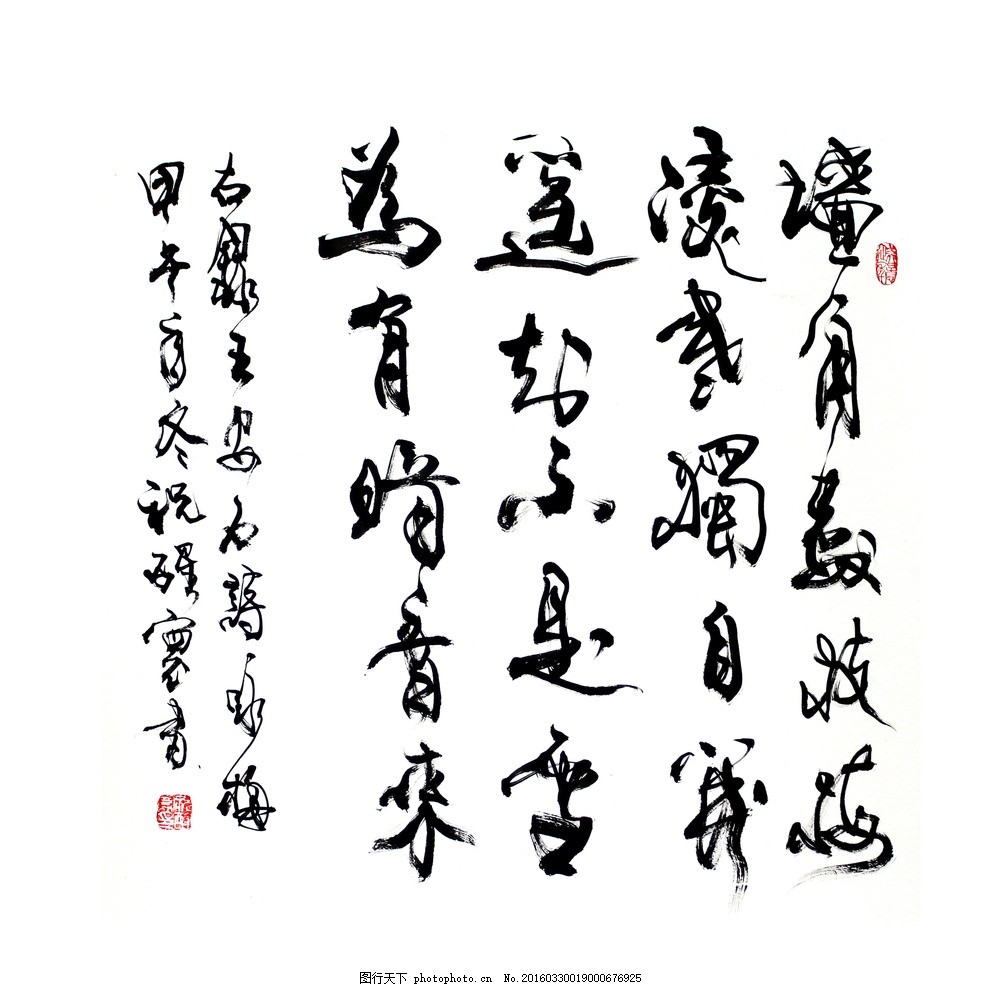 墻角數枝梅
凌寒獨自開
遥知不是雪
為有暗香來
右録王安石詩詠梅
甲午首冬祝醒寰書
图行天下 photophoto.cn No.20160330019000676925